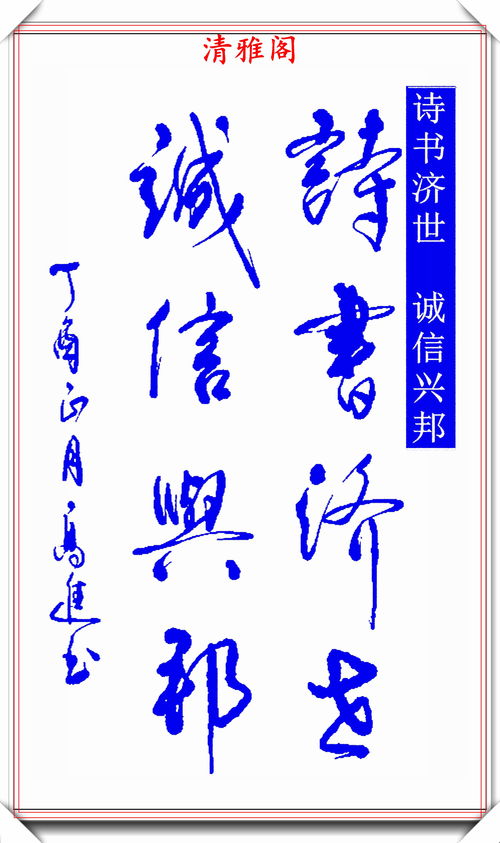 清雅阁
诗书济世 诚信兴邦
詩書济世
誠信興邦
丁酉正月高進书